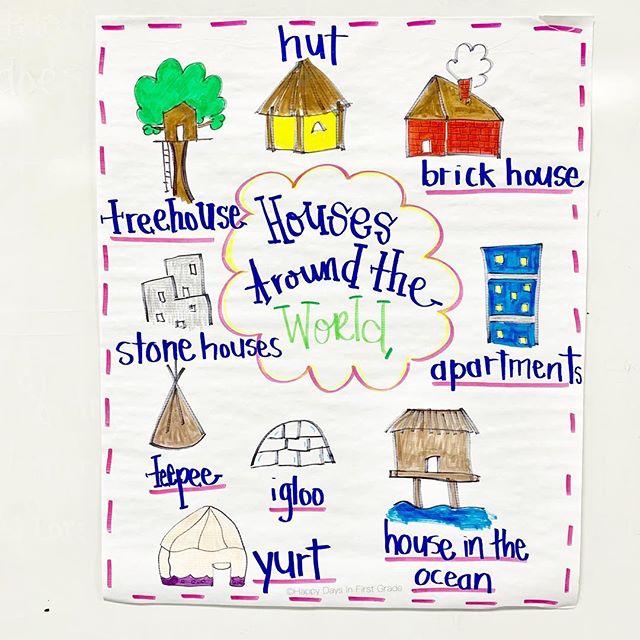 hut
brick house
treehouse
Houses
Around the
World
stone houses
apartments
teepee
igloo
yurt
house in the
ocean
©Happy Days In First Grade